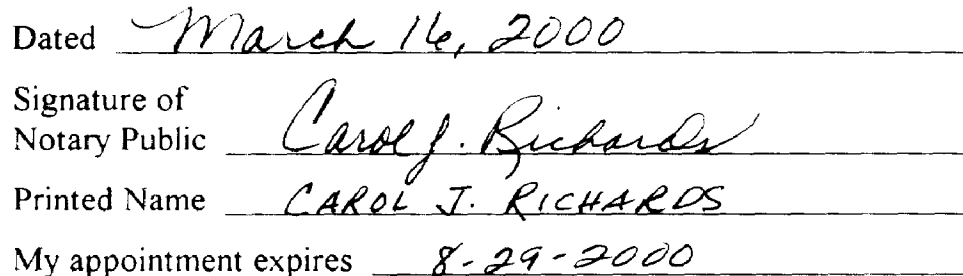 Dated March 16, 2000
Signature of
Notary Public Carol J. Richards
Printed Name CAROL J. RICHARDS
My appointment expires 8-29-2000